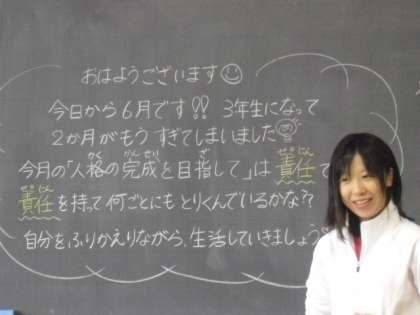 おはようございます
今日から6月です!! 3年生になって
2か月がもうすぎてしまいました
今月の「人格の完成を目指して」は責任で
責任を持って何ごとにもとりくんでいるかな??
自分をふりかえりながら、生活していきましょう